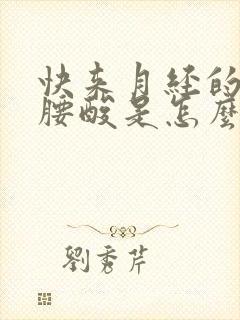 快来月经的
腰酸是怎麼
劉秀芹